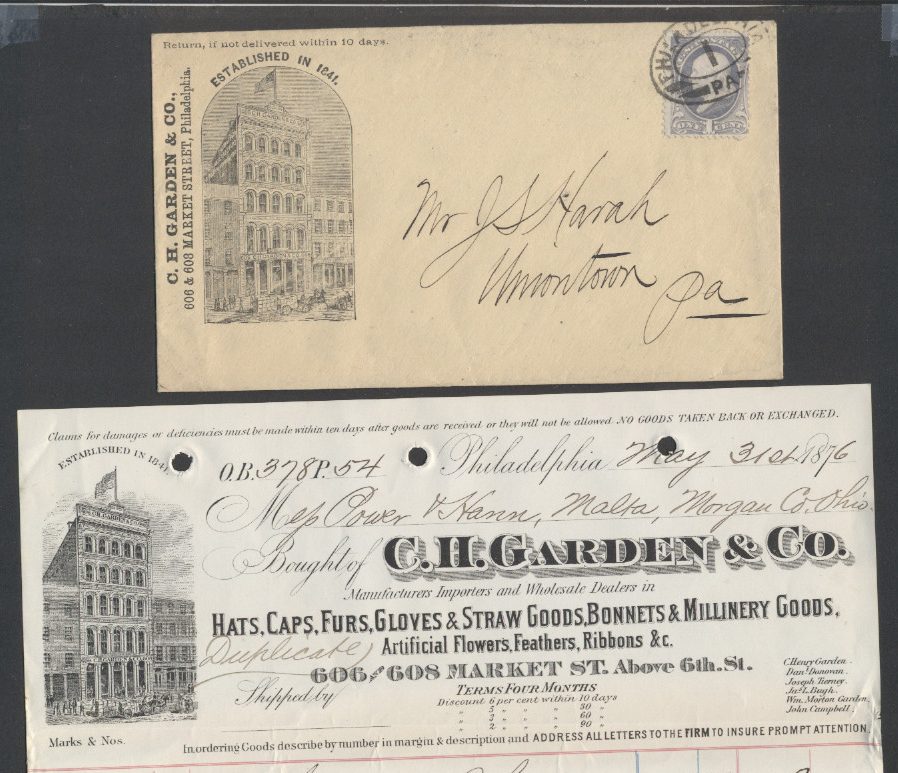 Return, if not delivered within 10 days.
ESTABLISHED IN 1841.
C. H. GARDEN & CO.,
606 & 608 MARKET STREET, Philadelphia.
PHILADELPHIA
1
PA
ONE CENT
Mr J S Harah
Uniontown
Pa
Claims for damages or deficiencies must be made within ten days after goods are received or they will not be allowed. NO GOODS TAKEN BACK OR EXCHANGED.
ESTABLISHED IN 1841
O.B. 378 P. 54 Philadelphia May 31st 1876
Mess Power & Hann, Malta, Morgan Co. Ohio.
Bought of C. H. GARDEN & CO.
Manufacturers Importers and Wholesale Dealers in
HATS, CAPS, FURS, GLOVES & STRAW GOODS, BONNETS & MILLINERY GOODS,
Duplicate Artificial Flowers, Feathers, Ribbons &c.
606 AND 608 MARKET ST. Above 6th. St.
Shipped by
TERMS FOUR MONTHS
Discount 6 per cent within 10 days
" 5 " " " 30 "
" 3 " " " 60 "
" 2 " " " 90 "
C. Henry Garden.
Danl. Donovan.
Joseph Tierney.
Jas. L. Bugh.
Wm. Morton Garden.
John Campbell.
Marks & Nos.
In ordering Goods describe by number in margin & description and ADDRESS ALL LETTERS TO THE FIRM TO INSURE PROMPT ATTENTION.